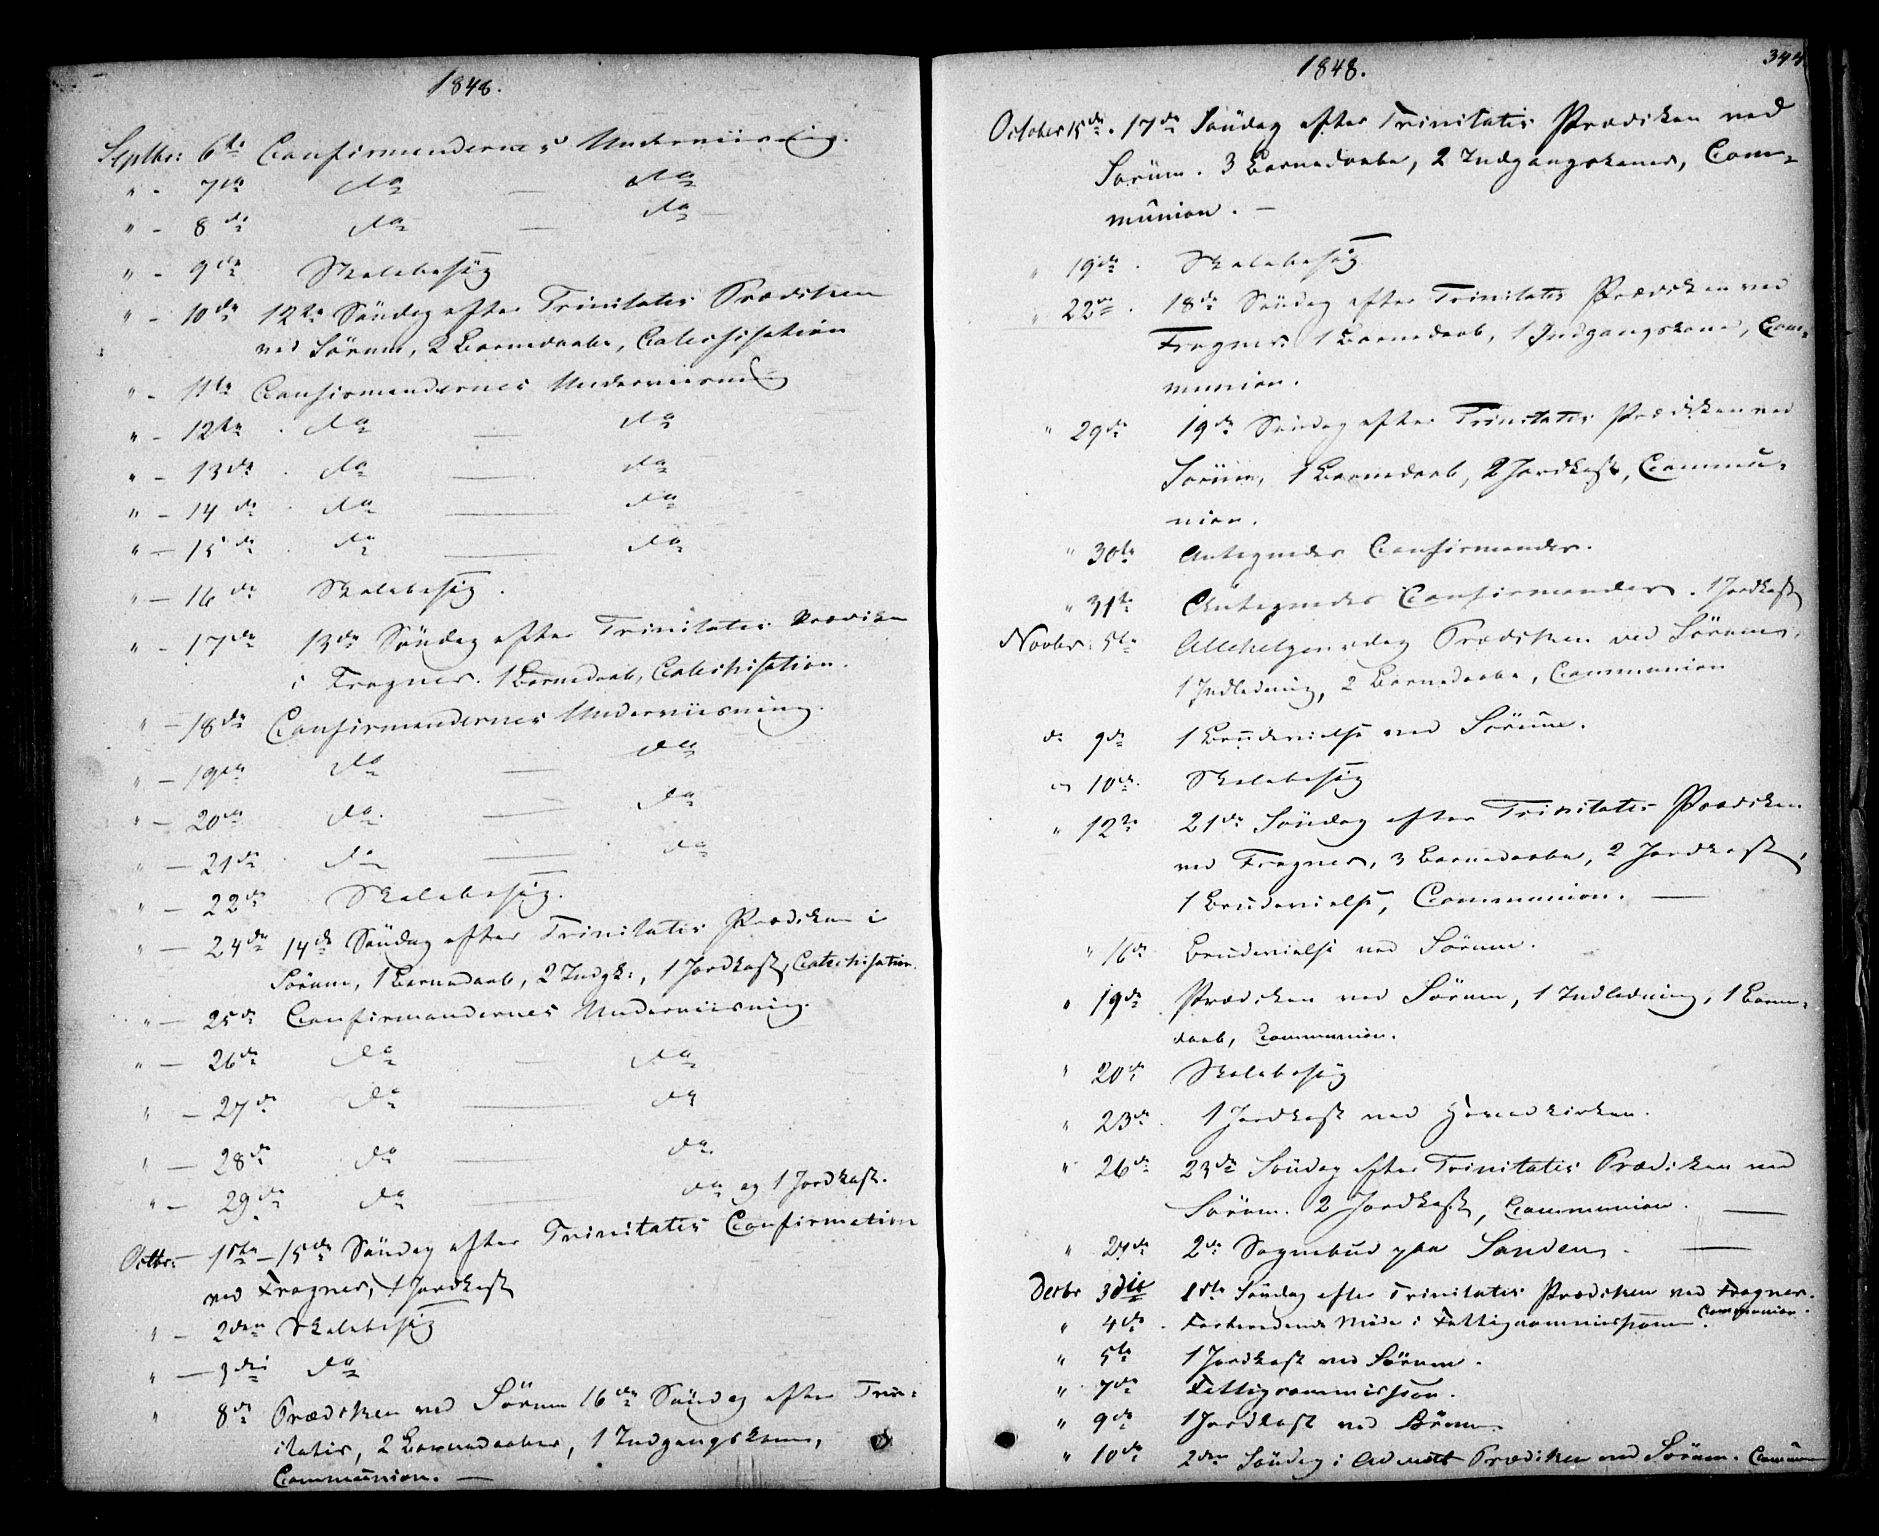 1848.
Septbr: 6te Confirmandernes Underviisning.
" - 7de do — do
" - 8de do — do
" - 9de Skolebesøg
" - 10de 12te Søndag efter Trinitatis Prædiken
ved Sørum, 2 Barnedaabe, Catechisation
" - 11te Confirmandernes Underviisning
" - 12te do — do
" - 13de do — do
" - 14de do — do
" - 15de do — do
" - 16de Skolebesøg.
" - 17de 13de Søndag efter Trinitatis Prædiken
i Frogner. 1 Barnedaab, Catechisation.
" - 18de Confirmandernes Underviisning.
" - 19de do — do
" - 20de do — do
" - 21de do — do
" - 22de Skolebesøg.
" - 24de 14de Søndag efter Trinitatis Prædiken i
Sørum, 1 Barnedaab, 2 Indgk:, 1 Jordkast, Catechisation.
" - 25de Confirmandernes Underviisning.
" - 26de do — do
" - 27de do — do
" - 28de do — do
" - 29de do — do og 1 Jordkast.
Octbr: - 1ste - 15de Søndag efter Trinitatis Confirmation
ved Frogner, 1 Jordkast
" - 2den Skolebesøg
" - 3die do
" 8de Prædiken ved Sørum 16de Søndag efter Trin-
itatis, 2 Barnedaaber, 1 Indgangskone,
Communion. —
1848.
344
October 15de. 17de Søndag efter Trinitatis Prædiken ved
Sørum. 3 Barnedaabe, 2 Indgangskoner, Com-
munion. —
" 19de. Skolebesøg
" 22de. 18de Søndag efter Trinitatis Prædiken ved
Frogner. 1 Barnedaab, 1 Indgangskone, Com-
munion.
" 29de 19de Søndag efter Trinitatis Prædiken ved
Sørum, 1 Barnedaab, 2 Jordkast, Commu-
nion.
" 30te Antegnedes Confirmander.
" 31te Antegnedes Confirmander. 1 Jordkast
Novbr: 5te Allehelgensdag Prædiken ved Sørum,
1 Indledning, 2 Barnedaabe, Communion
do 9de 1 Brudevielse ved Sørum.
" 10de. Skolebesøg
" 12te 21de Søndag efter Trinitatis Prædiken
ved Frogner, 3 Barnedaabe, 2 Jordkast,
1 Brudevielse, Communion. —
" 16de Brudevielse ved Sørum.
" 19de Prædiken ved Sørum, 1 Indledning, 1 Barne-
daab, Communion.
" 20de Skolebesøg
" 23de. 1 Jordkast ved Hovedkirken.
" 26de 23de Søndag efter Trinitatis Prædiken ved
Sørum. 2 Jordkast, Communion. —
" 27de 2de Sognebud paa Sanden. —
Decbr 3die 1ste Søndag efter Trinitatis Prædiken ved Frogner.
Communion.
" 4de. Forberedende Møde i Fattigcommissionen.
" 5te 1 Jordkast ved Sørum.
" 7de Fattigcommission.
" 9de 1 Jordkast ved Sørum
" 10de 2den Søndag i Advent Prædiken ved Sørum. Commun